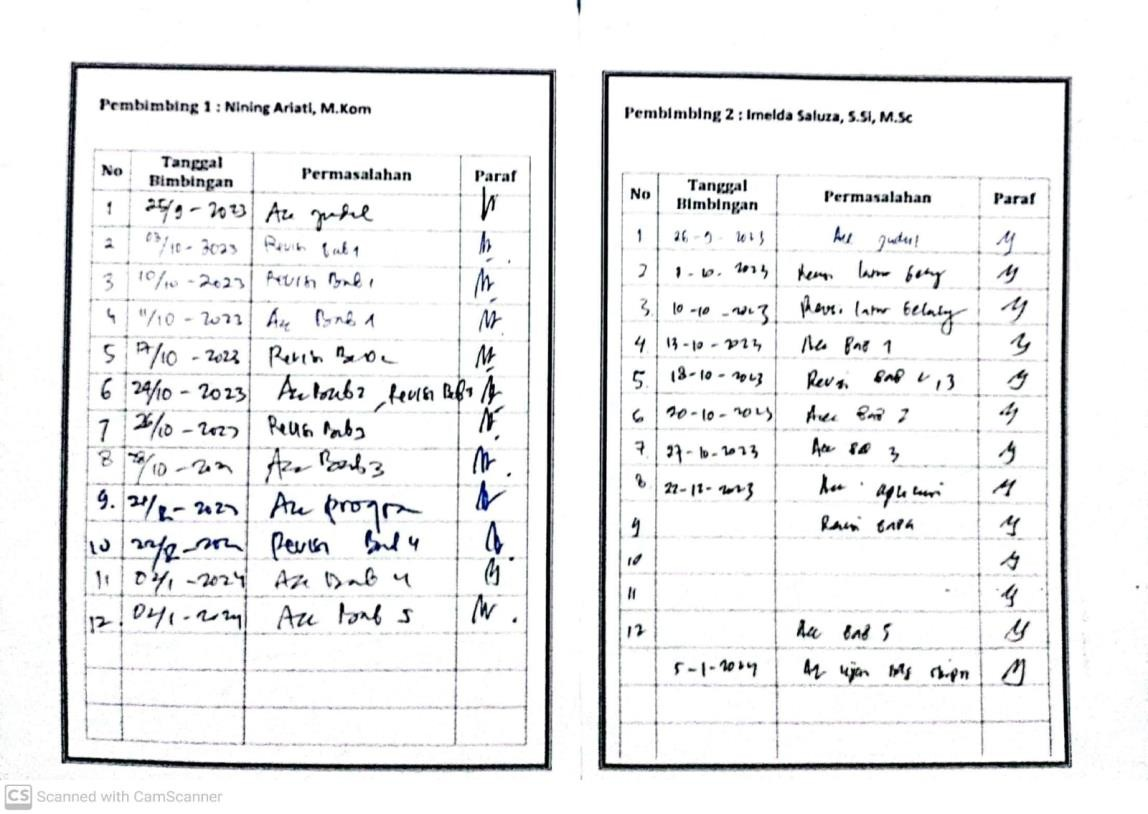 Pembimbing 1 : Nining Ariati, M.Kom
No Tanggal Bimbingan Permasalahan Paraf
1 25/9 - 2023 Acc judul
2 03/10 - 2023 Revisi Bab 1
3 10/10 - 2023 Revisi Bab 1
4 11/10 - 2023 Acc Bab 1
5 17/10 - 2023 Revisi
6 24/10 - 2023 Acc Bab 2, Revisi Bab 3
7 26/10 - 2023 Revisi Bab 3
8 /10 - Acc Bab 3
9. Acc progra
10 Revisi Bab 4
11 02/1 - 2024 Acc Bab 4
12. 04/1 - 2024 Acc Bab 5
Pembimbing 2 : Imelda Saluza, S.Si, M.Sc
No Tanggal Bimbingan Permasalahan Paraf
1 26 - 9 - 2023 Acc judul
2 - 10 - 2023 Revisi latar
3. 10 - 10 - 2023 Revisi latar belakang
4 13 - 10 - 2023 Acc Bab 1
5. 18 - 10 - 2023 Revisi Bab 2, 3
6 20 - 10 - 2023 Acc Bab 2
7 27 - 10 - 2023 Acc Bab 3
8 22 - 12 - 2023 Acc aplikasi
9 Revisi Bab 4
10
11
12 Acc Bab 5
5 - 1 - 2024 Acc ujian
CS Scanned with CamScanner